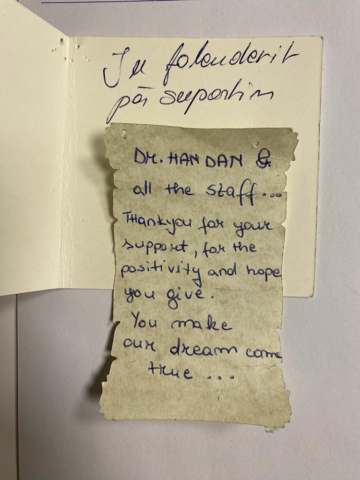 Ju falenderit
për suportin
DR. HANDAN &
all the staff...
Thankyou for your
support, for the
positivity and hope
you give.
You make
our dream come
true ...